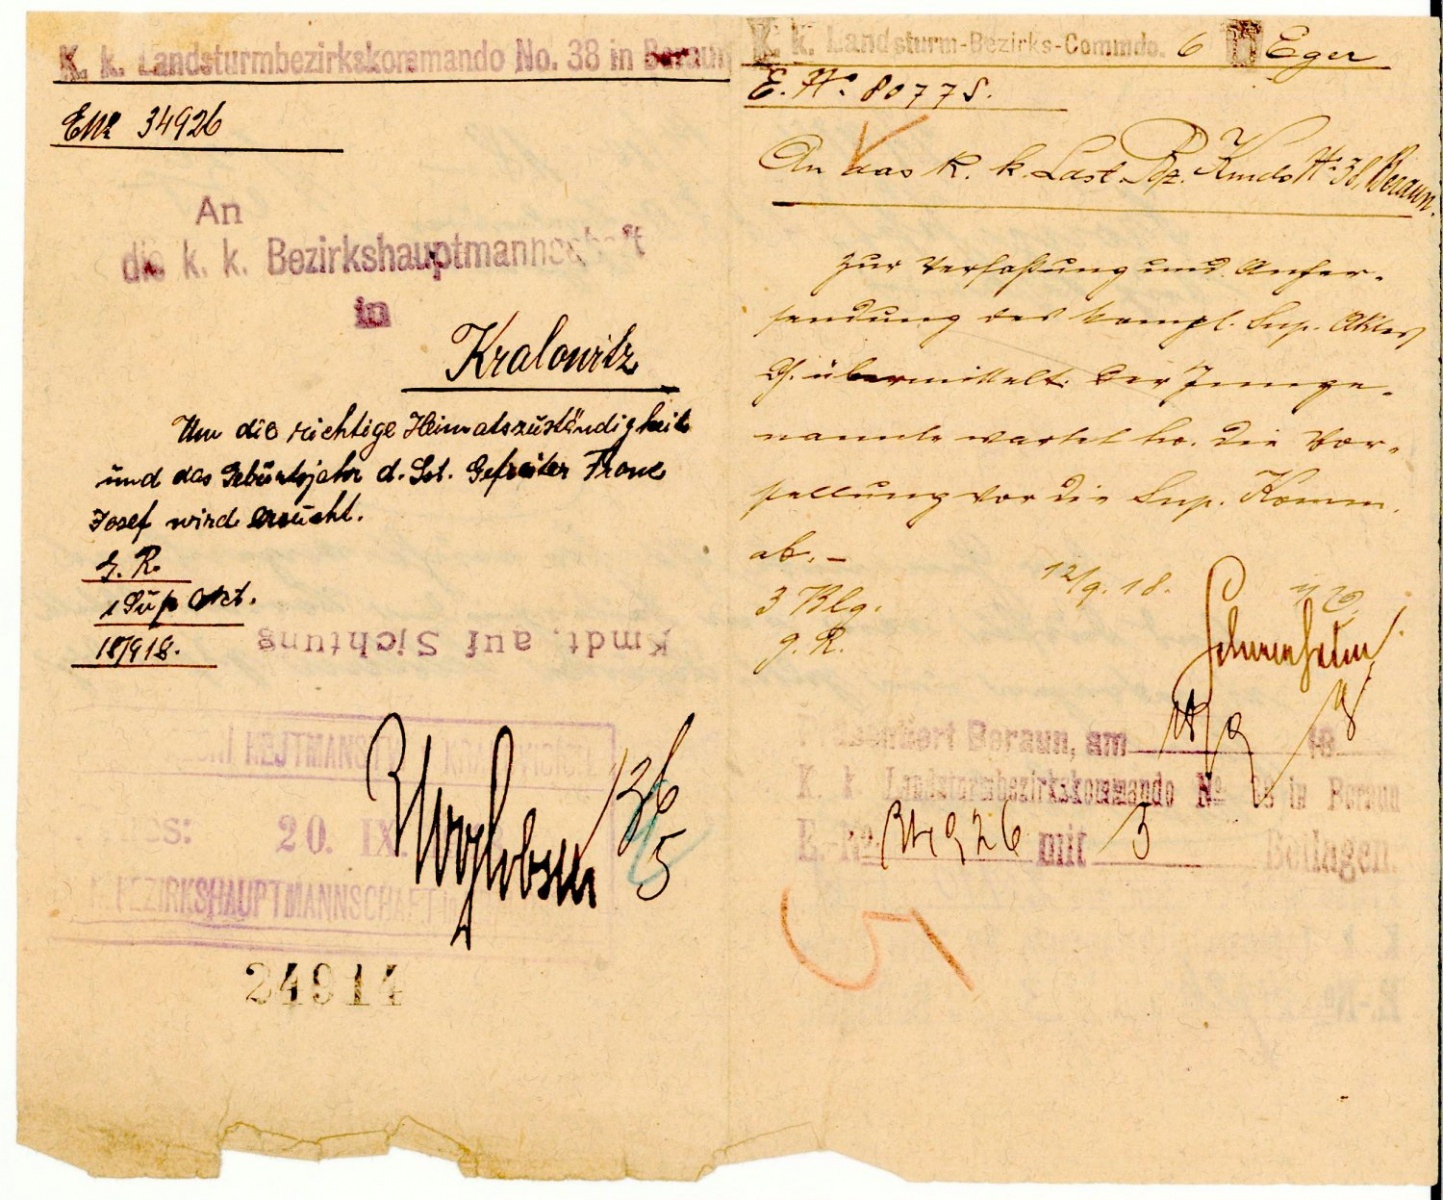 K. k. Landsturmbezirkskommando No. 38 in Beraun
ENo 34926
An
die k. k. Bezirkshauptmannschaft
in
Kralowitz
Um die richtige Heimatszuständigkeit
und das Gebürtsjahr d. Lst. Gefreiter Franc
Josef wird ersucht.
G. R.
1 Sup Akt.
18/9 18.
Kmdt. auf Sichtung
HEJTMANSTVÍ
20. IX.
BEZIRKSHAUPTMANNSCHAFT
24914
K. k. Landsturm-Bezirks-Commdo. 6 Eger
E. No. 80775.
An das k. k. Ldst. Bez. Kmdo No 38, Beraun.
zur Verfaßung und Anher-
sendung des kompl. Sup. Aktes
übermittelt. Der Inenge-
nannte wartet die Vor-
stellung vor die Sup. Komm.
ab. –
3 Blg.
g. R.
12/9. 18.
Präsentiert Beraun, am 18/9 1918
K. k. Landsturmbezirkskommando No 38 in Beraun
E.-No. 34926 mit 3 Beilagen.
5